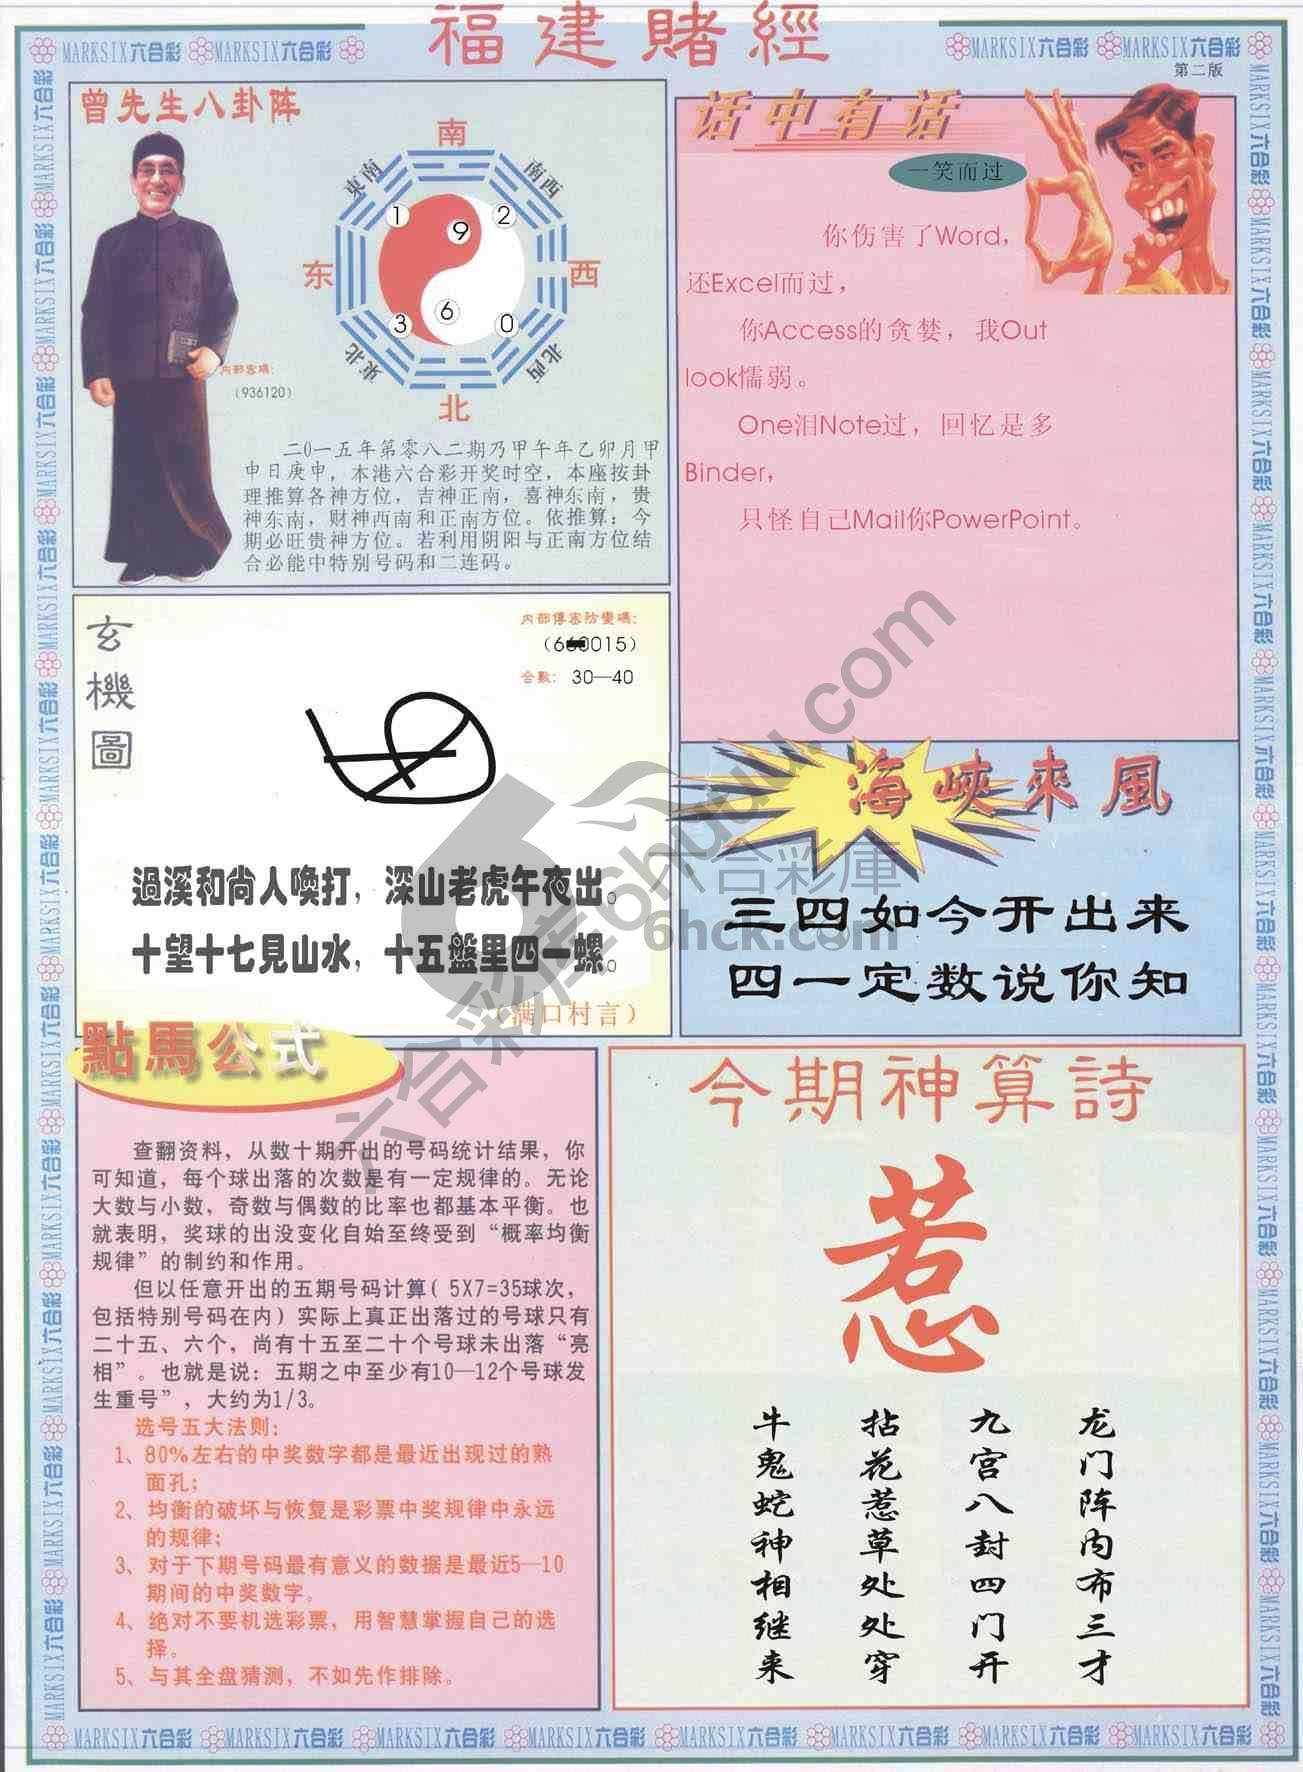 福建賭經
MARKSIX六合彩 MARKSIX六合彩
MARKSIX六合彩 MARKSIX六合彩
第二版
曾先生八卦阵
南
東南
南西
1
9
2
东
西
3
6
0
東北
北西
北
内部密碼：
（936120）
二○一五年第零八二期乃甲午年乙卯月甲
申日庚申，本港六合彩开奖时空，本座按卦
理推算各神方位，吉神正南，喜神东南，贵
神东南，财神西南和正南方位。依推算：今
期必旺贵神方位。若利用阴阳与正南方位结
合必能中特别号码和二连码。
话中有话
一笑而过
你伤害了Word，
还Excel而过，
你Access的贪婪，我Out
look懦弱。
One泪Note过，回忆是多
Binder，
只怪自己Mail你PowerPoint。
玄機圖
内部傳密防變碼：
合數： 30—40
過溪和尚人喚打，深山老虎午夜出。
十望十七見山水，十五盤里四一螺。
（满口村言）
海峽來風
三四如今开出来
四一定数说你知
點馬公式
查翻资料，从数十期开出的号码统计结果，你
可知道，每个球出落的次数是有一定规律的。无论
大数与小数，奇数与偶数的比率也都基本平衡。也
就表明，奖球的出没变化自始至终受到“概率均衡
规律”的制约和作用。
但以任意开出的五期号码计算（5X7=35球次，
包括特别号码在内）实际上真正出落过的号球只有
二十五、六个，尚有十五至二十个号球未出落“亮
相”。也就是说：五期之中至少有10—12个号球发
生重号”，大约为1/3。
选号五大法则：
1、80%左右的中奖数字都是最近出现过的熟
面孔；
2、均衡的破坏与恢复是彩票中奖规律中永远
的规律；
3、对于下期号码最有意义的数据是最近5—10
期间的中奖数字。
4、绝对不要机选彩票，用智慧掌握自己的选
择。
5、与其全盘猜测，不如先作排除。
今期神算詩
惹
龙门阵内布三才
九宫八封四门开
拈花惹草处处穿
牛鬼蛇神相继来
六合彩庫
6hck.com
六合彩库6huuu.com
MARKSIX六合彩 MARKSIX六合彩 MARKSIX六合彩 MARKSIX六合彩 MARKSIX六合彩 MARKSIX六合彩 MARKSIX六合彩 MARKSIX六合彩